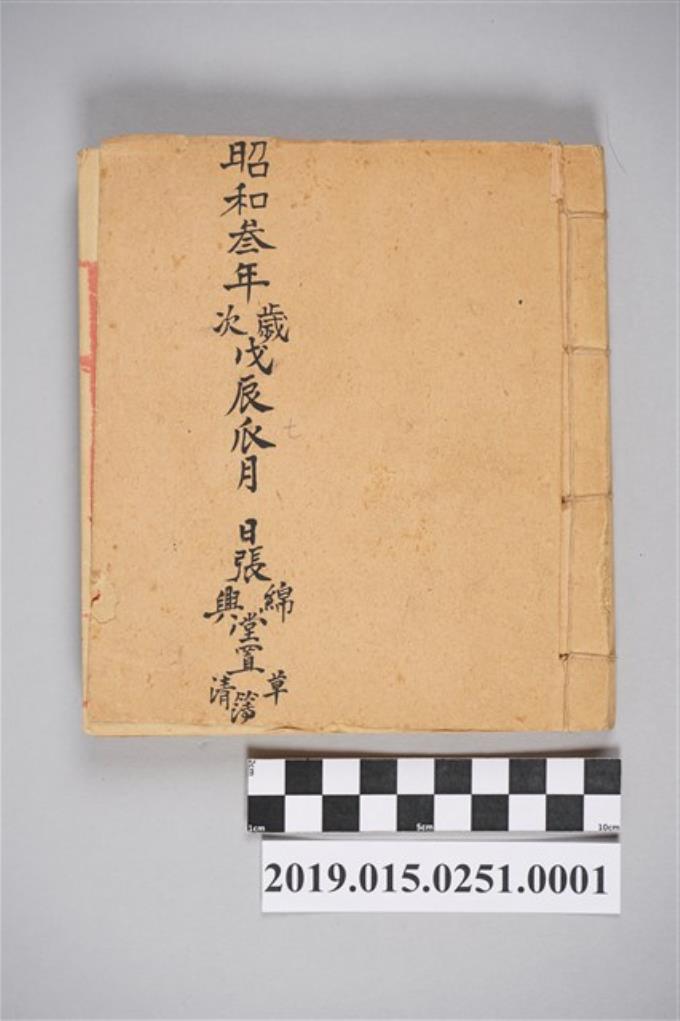 昭和叁年歲次戊辰瓜月 日張綿興堂置草清簿
七
2cm
1cm 5cm 10cm
2019.015.0251.0001